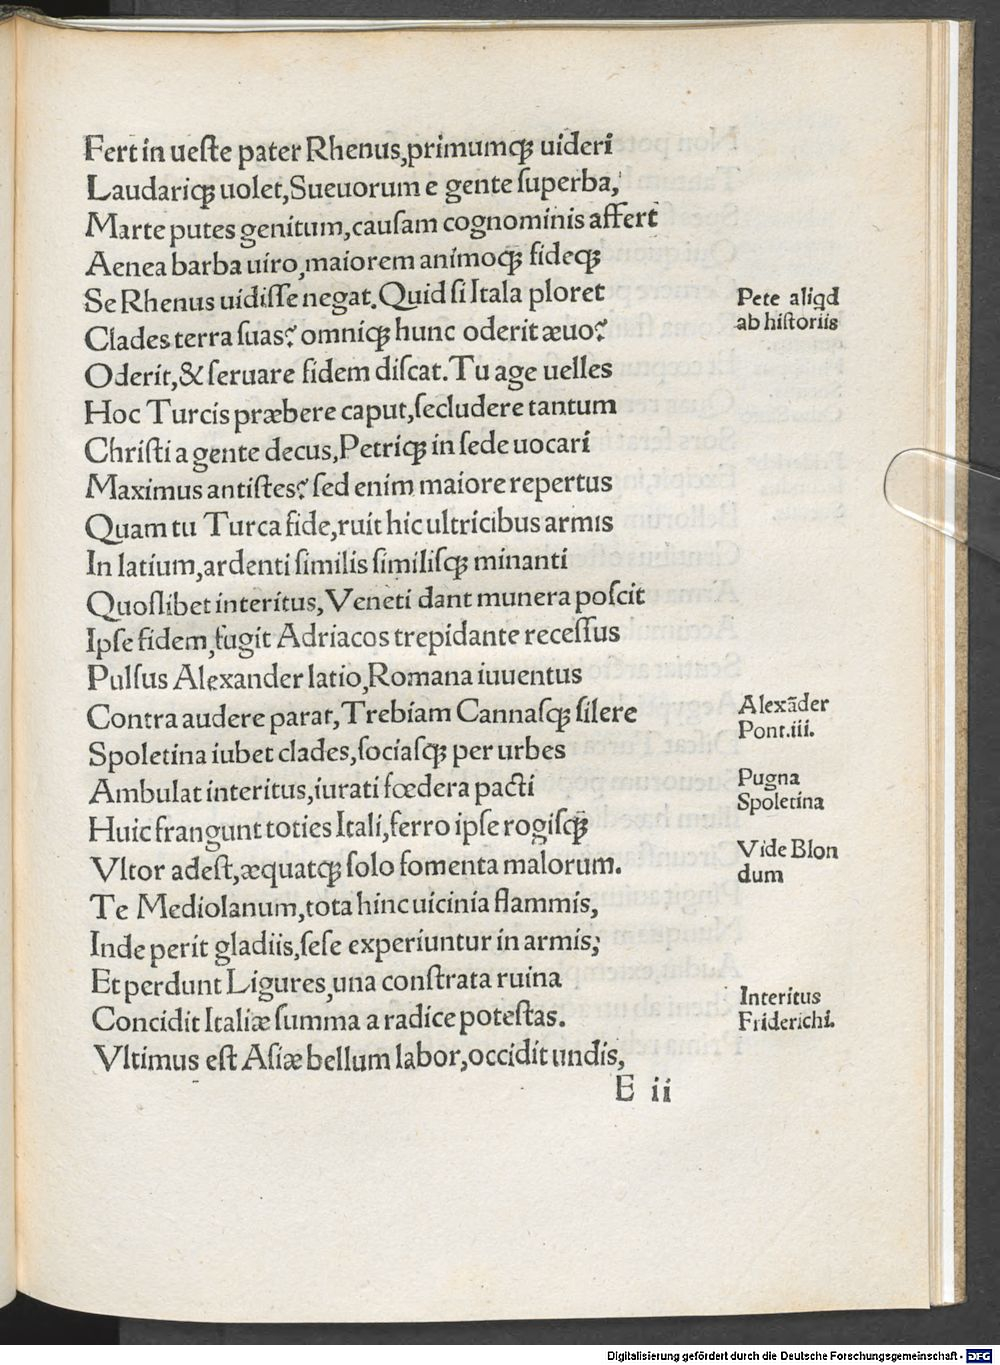 Fert in ueſte pater Rhenus,primumqꝫ uideri
Laudariqꝫ uolet,Sueuorum e gente ſuperba,
Marte putes genitum,cauſam cognominis affert
Aenea barba uiro,maiorem animoqꝫ fideqꝫ
Se Rhenus uidiſſe negat.Quid ſi Itala ploret
Clades terra ſuas? omniqꝫ hunc oderit æuo?
Oderit,& ſeruare fidem diſcat.Tu age uelles
Hoc Turcis præbere caput,ſecludere tantum
Chriſti a gente decus,Petriqꝫ in ſede uocari
Maximus antiſtes? ſed enim maiore repertus
Quam tu Turca fide,ruit hic ultricibus armis
In latium,ardenti ſimilis ſimiliſqꝫ minanti
Quoſlibet interitus,Veneti dant munera poſcit
Ipſe fidem,fugit Adriacos trepidante receſſus
Pulſus Alexander latio,Romana iuuentus
Contra audere parat,Trebiam Cannaſqꝫ ſilere
Spoletina iubet clades,ſociaſqꝫ per urbes
Ambulat interitus,iurati fœdera pacti
Huic frangunt toties Itali,ferro ipſe rogiſqꝫ
Vltor adeſt,æquatqꝫ ſolo fomenta malorum.
Te Mediolanum,tota hinc uicinia flammis,
Inde perit gladiis,ſeſe experiuntur in armis,
Et perdunt Ligures,una conſtrata ruina
Concidit Italiæ ſumma a radice poteſtas.
Vltimus eſt Aſiæ bellum labor,occidit undis,
E ii
Pete aliqd
ab hiſtoriis
Alexāder
Pont.iii.
Pugna
Spoletina
Vide Blon
dum
Interitus
Friderichi.
Digitalisierung gefördert durch die Deutsche Forschungsgemeinschaft - DFG